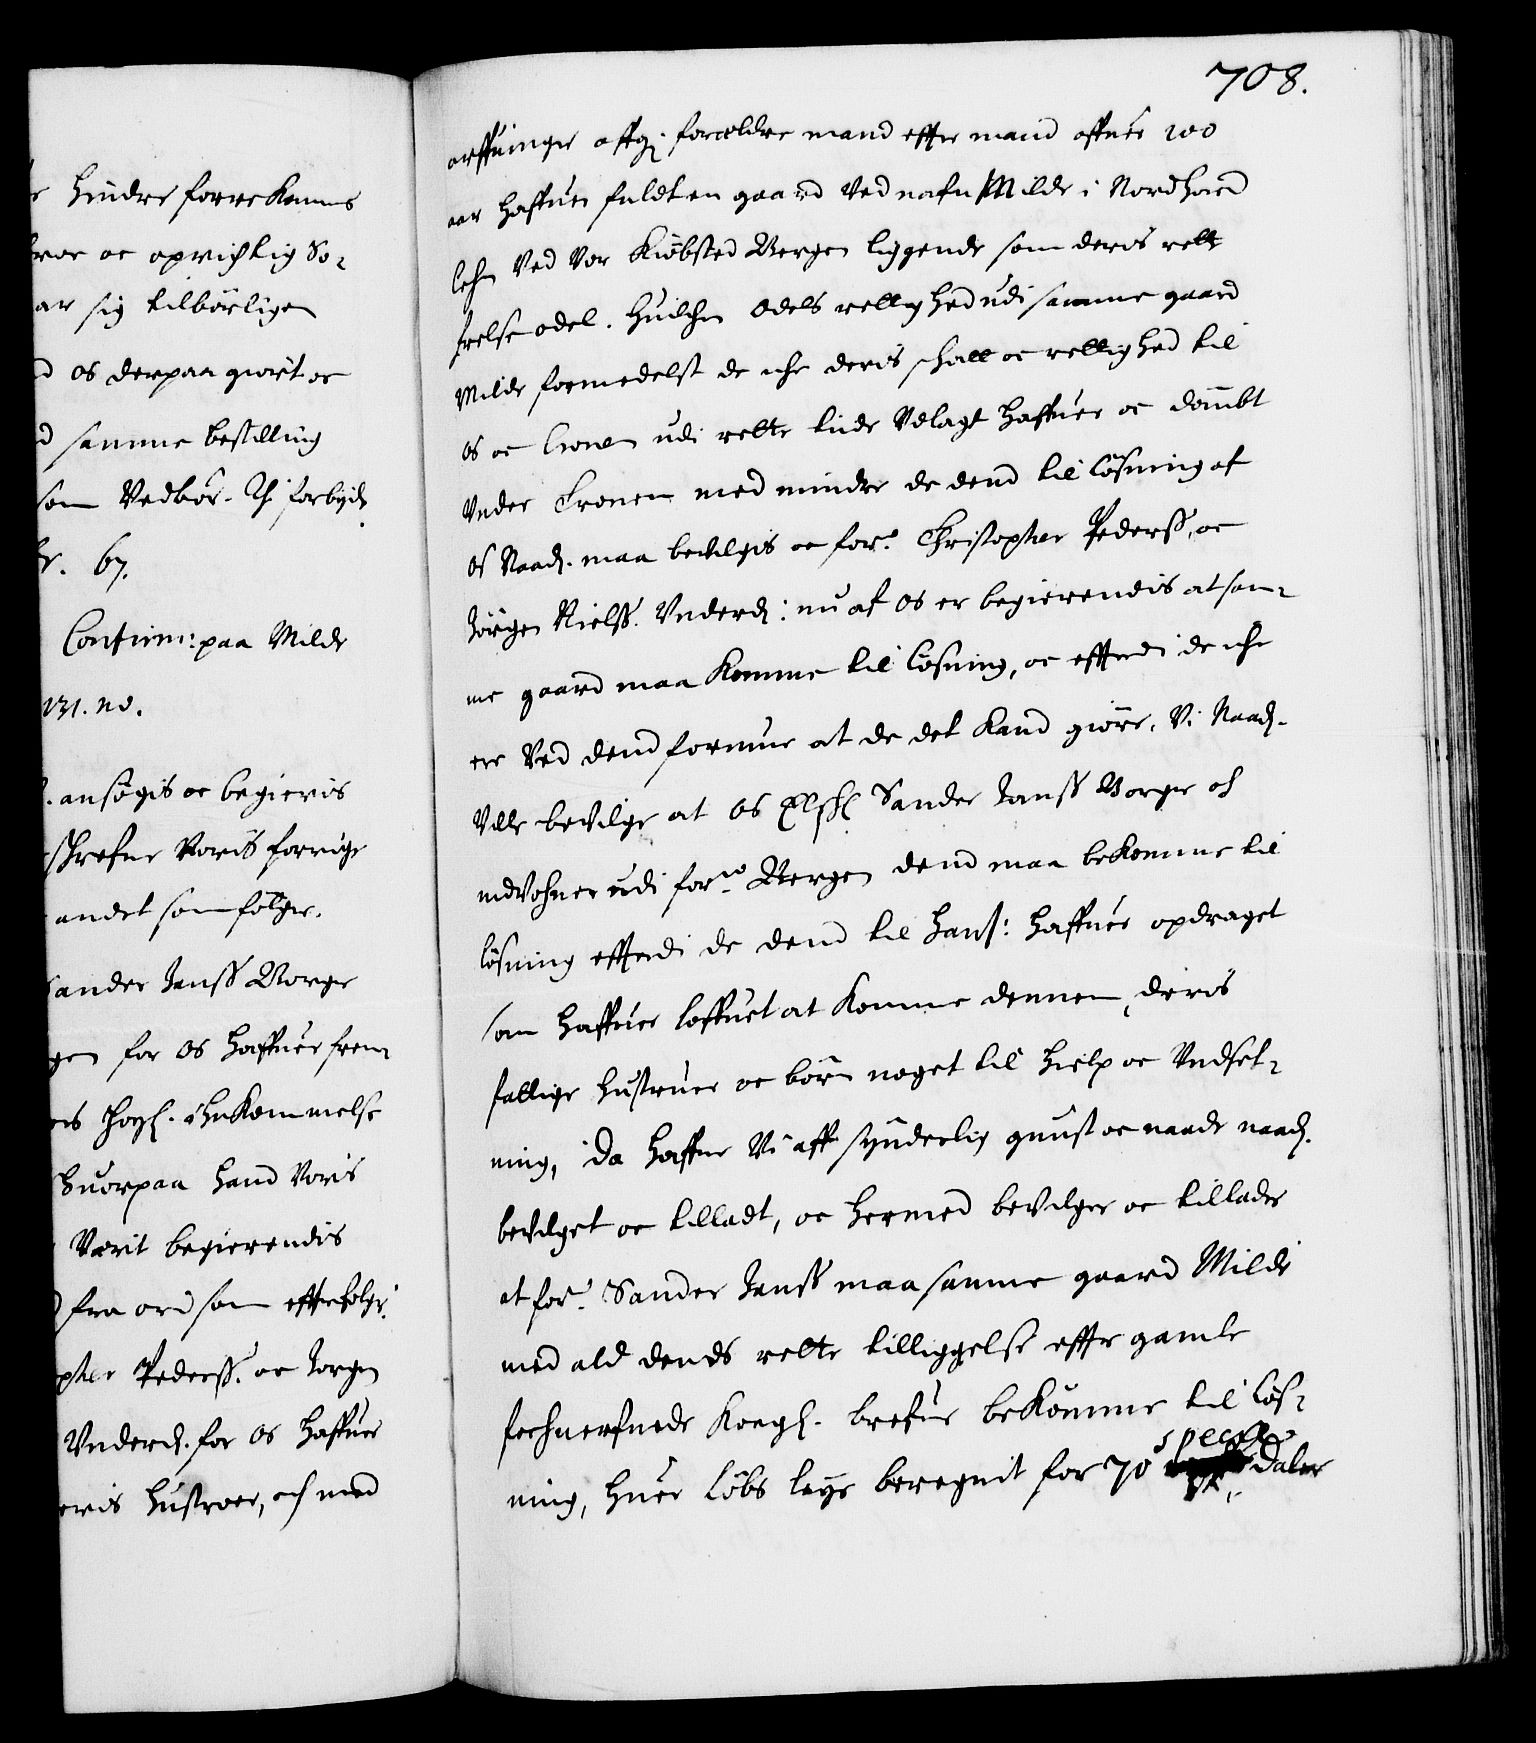 hindre forrekomme
oc oprichtig So-
ar sig tilbörligen
os derpaa giört oc
samme bestilling
som Vedbör. Thi forbyd:
67.
Confirm: paa Milde
131. no.
ansögis oc begieris
schrefne Voris forrige
andet som fölger.
Sander Janss Borger
gen for os haffuer frem-
Kongl. ihukommelse
huorpaa hand Voris
Verit begierendis
fra ord som effterfölger.
pher Pederss. oc Jörgen
Vnderd. for os haffuer
eris hustroer, oc med
708.
arffuinger affg: foreldre mand effter mand offuer 200
aar haffuer fuldt en gaard Ved nafn Milde i Nordhord
lehn Ved Vor Kiöbsted Bergen liggende som deris rette
frelse odel. Huilchen Odels rettighed udi samme gaard
Milde formedelst de iche deris schatt oc rettighed til
os oc Cronen udi rette tide Udlagt haffuer oc dömbt
Vnder Cronen med mindre de dend til lösning af
os Naad. maa bevilgis oc for.ne Christopher Pederss. oc
Jörgen Nielss. Vnderd: nu af os er begierendis at sam-
me gaard maa komme til lösning, oc efftterdi de iche
ere Ved dend formue at de det kand giöre, Vi Naad.
Ville bevilge at os Elsch: Sander Janss Borger och
indVohner udi for.ne Bergen dend maa bekomme til
lösning effterdi de dend til hans: haffuer opdraget
som haffuer loffuet at komme dennem, deris
fattige hustruer oc börn noget til hielp oc Vndset-
ning, Da haffue Vi aff synderlig gunst oc naade naad.
bevilget oc tilladt, oc hermed bevilger oc tillader
at for.ne Sander Janss maa samme gaard Milde
med ald dends rette tilliggelse effter gamle
Kongl. brefue bekomme til lös-
ning, huer Löbs leye beregnit for 70 specie daler